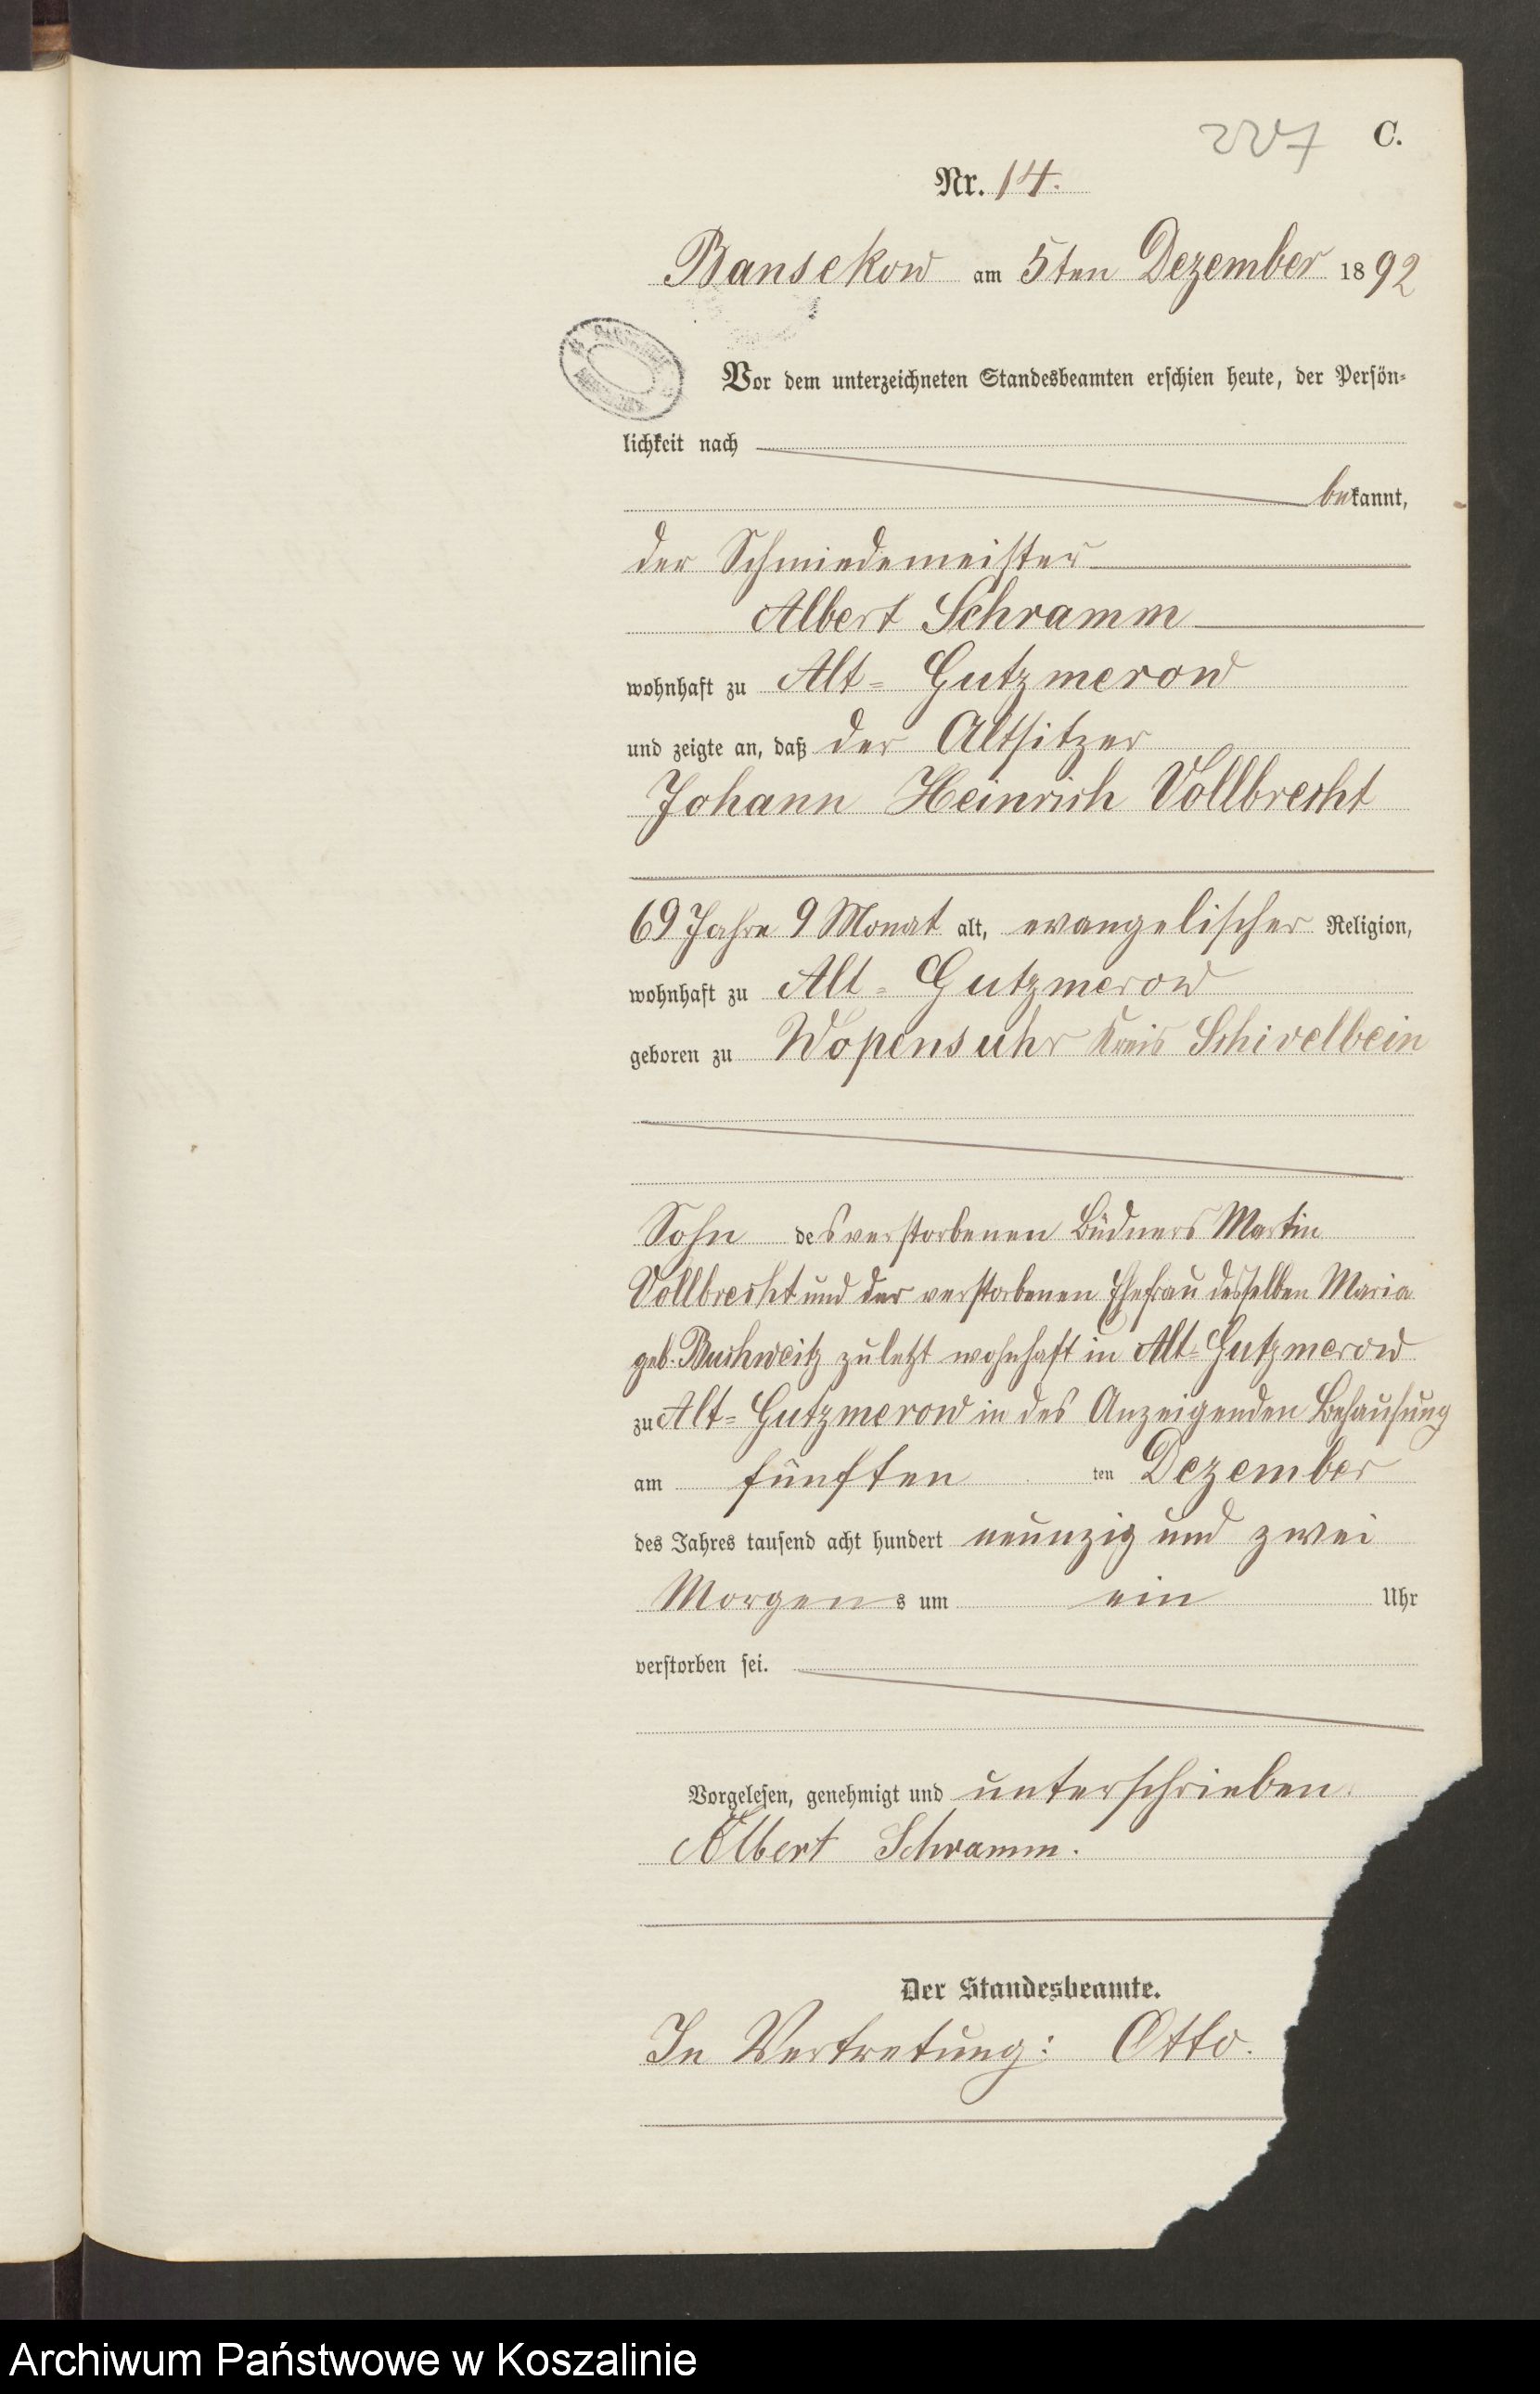 227 C.
Nr. 14.
Bansekow am 5ten Dezember 1892
Vor dem unterzeichneten Standesbeamten erschien heute, der Persön-
lichkeit nach
bekannt,
der Schmiedemeister
Albert Schramm
wohnhaft zu Alt- Gutzmerow
und zeigte an, daß der Altsitzer
Johann Heinrich Vollbrecht
69 Jahre 9 Monat alt, evangelischer Religion,
wohnhaft zu Alt- Gutzmerow
geboren zu Wopensuhr Kreis Schivelbein
Sohn des verstorbenen Büdners Martin
Vollbrecht und der verstorbenen Ehefrau desselben Maria
geb. Buchweitz zuletzt wohnhaft in Alt-Gutzmerow
zu Alt-Gutzmerow in des Anzeigenden Behausung
am fünften ten Dezember
des Jahres tausend acht hundert neunzig und zwei
Morgens um ein Uhr
verstorben sei.
Vorgelesen, genehmigt und unterschrieben.
Albert Schramm.
Der Standesbeamte.
In Vertretung: Otto.
Archiwum Państwowe w Koszalinie